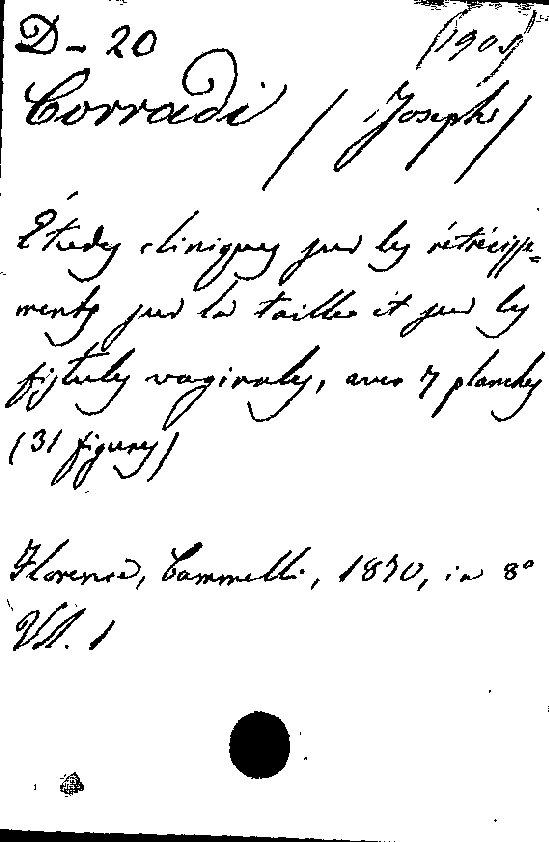 D - 20 (1909)
Corradi / Joseph /
Études cliniques sur les rétrécisse=
ments sur la taille et sur les
fistules vaginales, avec 7 planches
(31 figures)
Florence, Cammelli, 1870, in 8°
Vol. 1